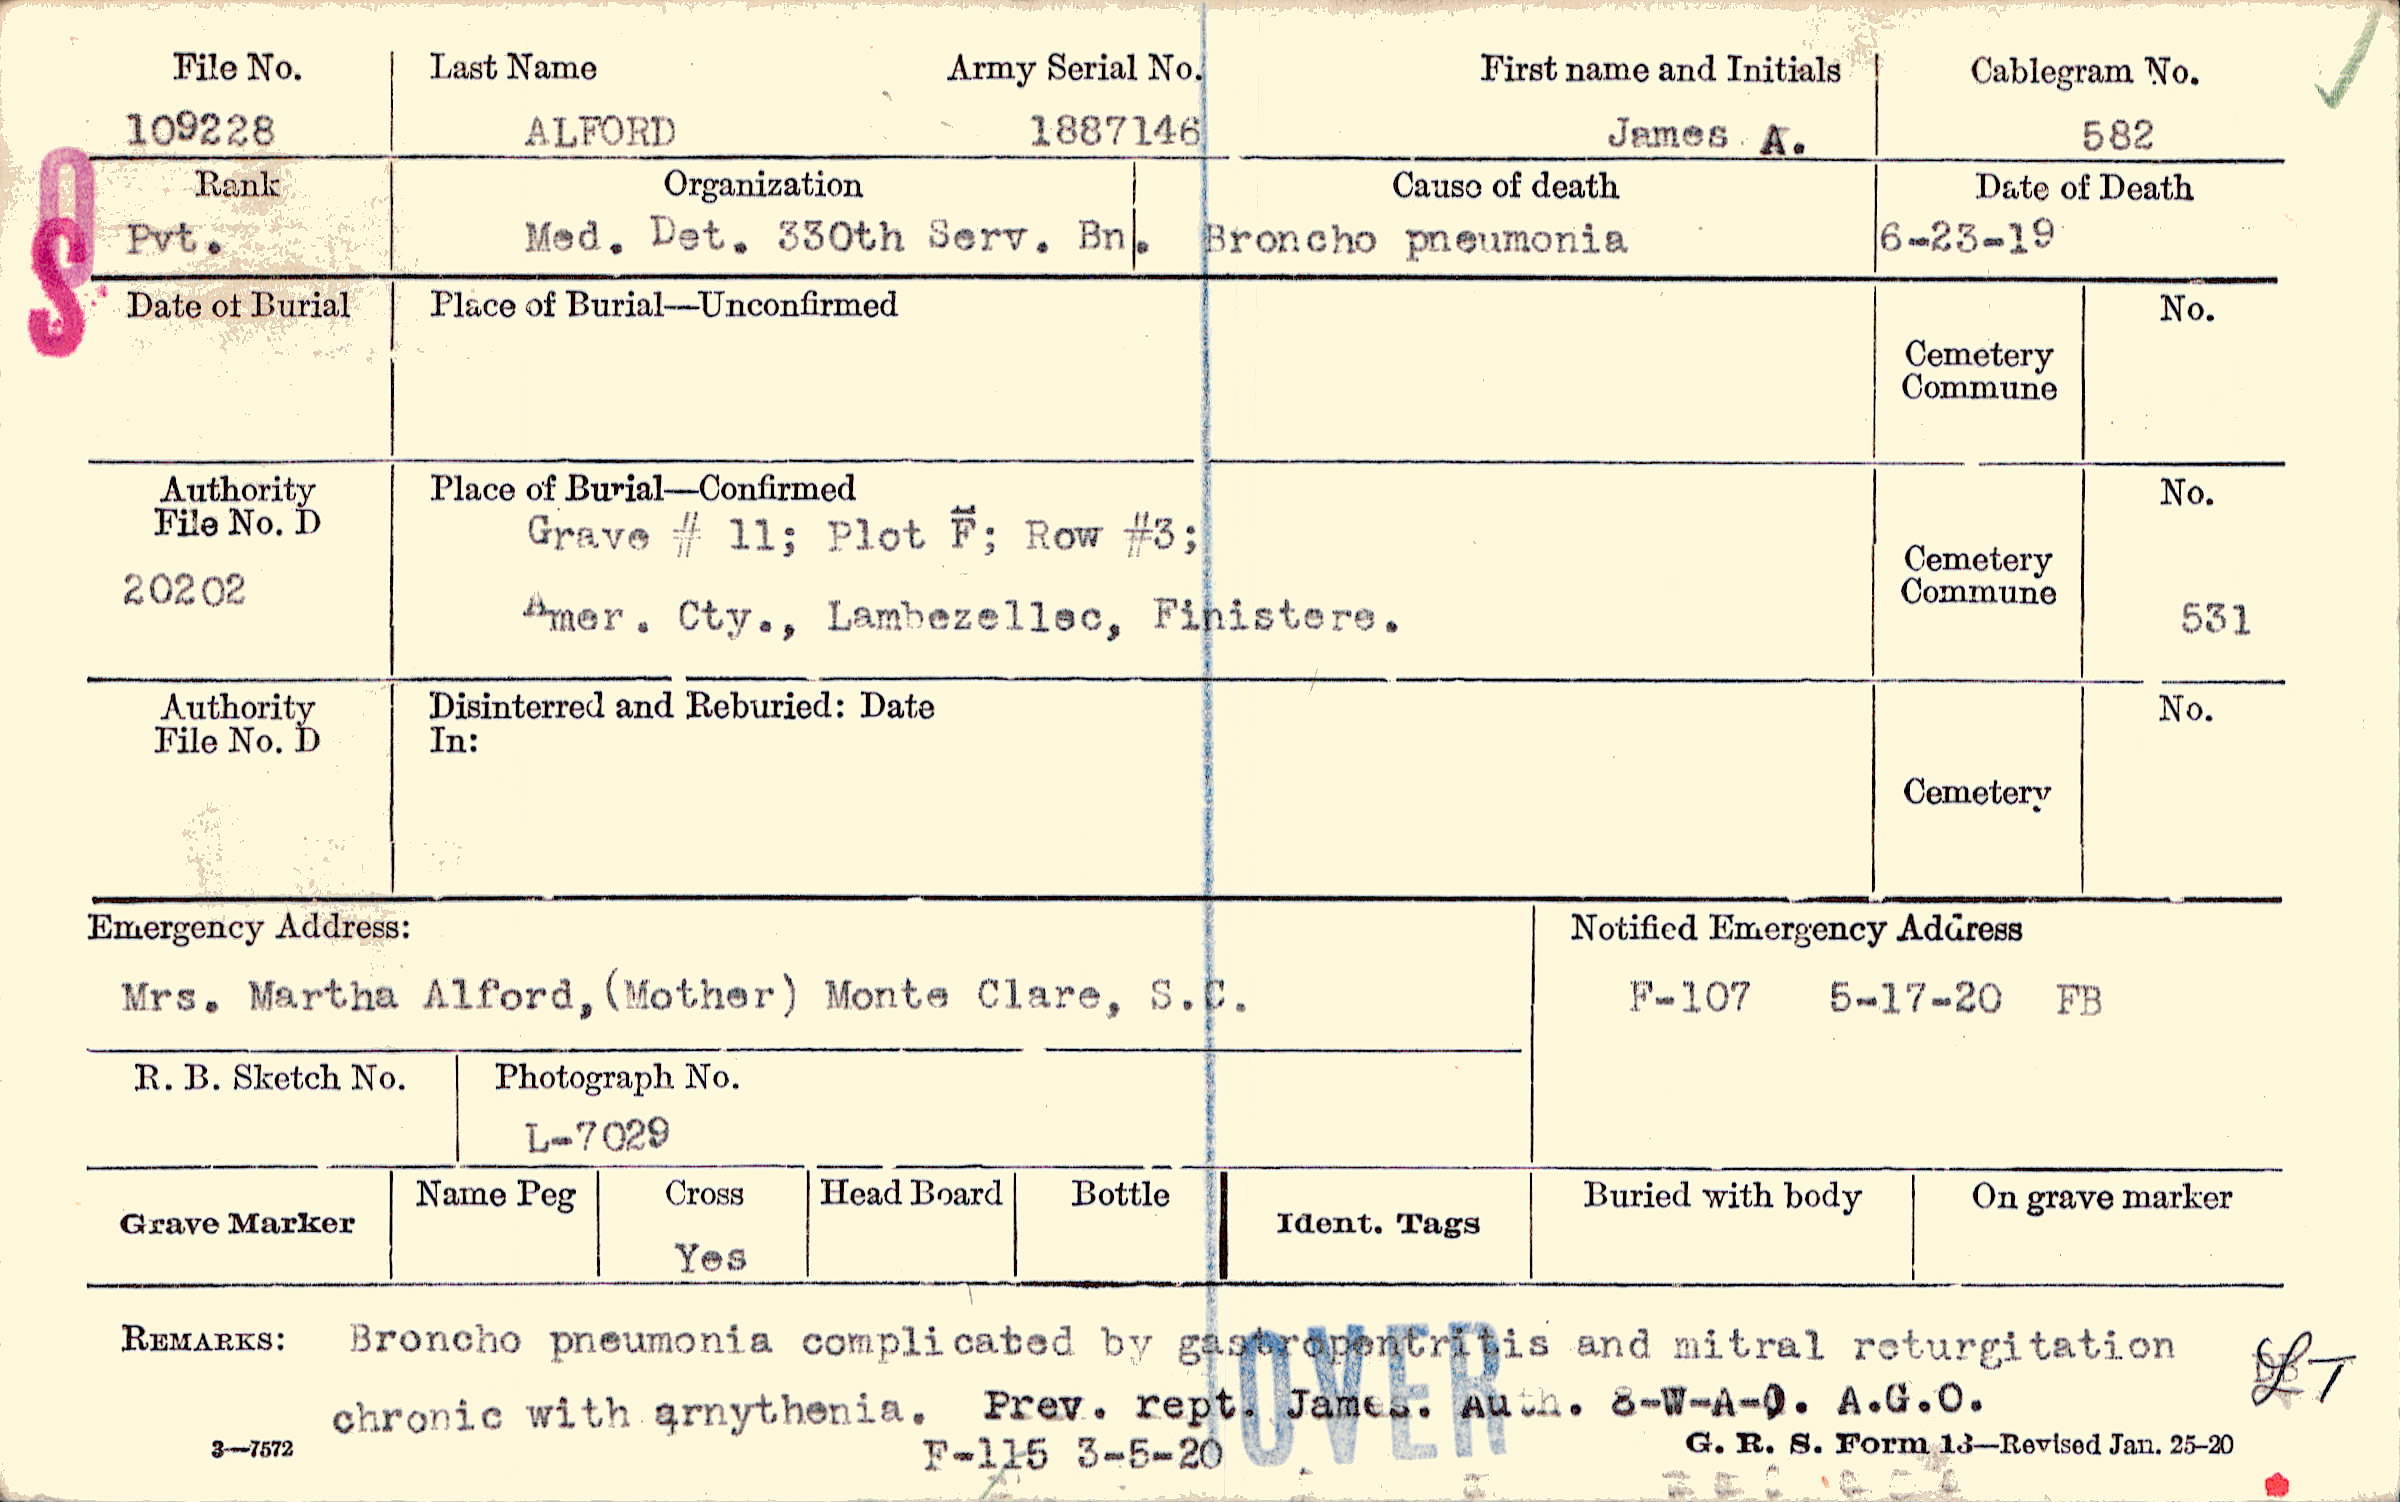 File No. Last Name Army Serial No. First name and Initials Cablegram No.
109228 ALFORD 1887146 James A. 582
Rank Organization Cause of death Date of Death
Pvt. Med. Det. 330th Serv. Bn. Broncho pneumonia 6-23-19
O
S
Date of Burial Place of Burial—Unconfirmed No.
Cemetery
Commune
Authority Place of Burial—Confirmed No.
File No. D
Grave # 11; Plot F; Row #3;
20202
Cemetery
Commune
Amer. Cty., Lambezellec, Finistere. 531
Authority Disinterred and Reburied: Date No.
File No. D In:
Cemetery
Emergency Address: Notified Emergency Address
Mrs. Martha Alford,(Mother) Monte Clare, S.C. F-107 5-17-20 FB
R. B. Sketch No. Photograph No.
L-7029
Grave Marker Name Peg Cross Head Board Bottle Ident. Tags Buried with body On grave marker
Yes
REMARKS: Broncho pneumonia complicated by gastropentritis and mitral returgitation
chronic with arnythenia. Prev. rept. James. Auth. 8-W-A-O. A.G.O.
OVER
F-115 3-5-20
3—7572 G. R. S. Form 13—Revised Jan. 25-20